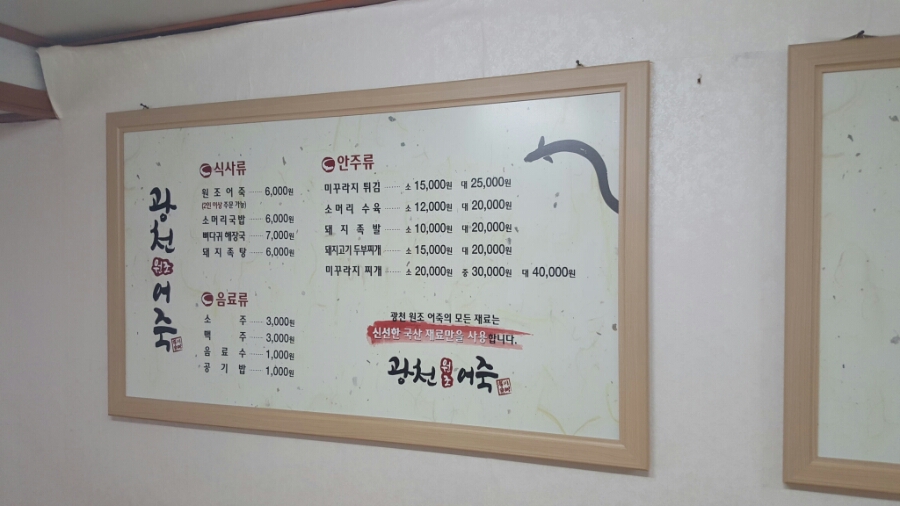 광천 원조 어죽
식사류
원조어죽 6,000원
(2인 이상 주문 가능)
소머리국밥 6,000원
뼈다귀 해장국 7,000원
돼지족탕 6,000원
음료류
소주 3,000원
맥주 3,000원
음료수 1,000원
공기밥 1,000원
안주류
미꾸라지 튀김 소 15,000원 대 25,000원
소머리 수육 소 12,000원 대 20,000원
돼지족발 소 10,000원 대 20,000원
돼지고기 두부찌개 소 15,000원 대 20,000원
미꾸라지 찌개 소 20,000원 중 30,000원 대 40,000원
광천 원조 어죽의 모든 재료는
신선한 국산 재료만을 사용합니다.
광천 원조 어죽